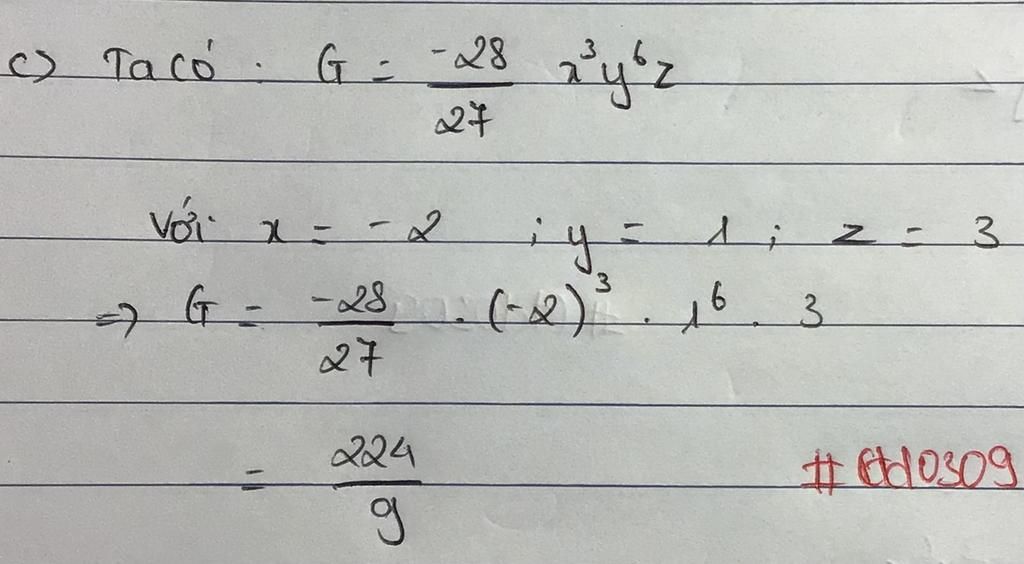 c) Ta có: G = -28/27 x³y⁶z
Với x = -2 ; y = 1 ; z = 3
=> G = -28/27 . (-2)³ . 1⁶ . 3
= 224/9